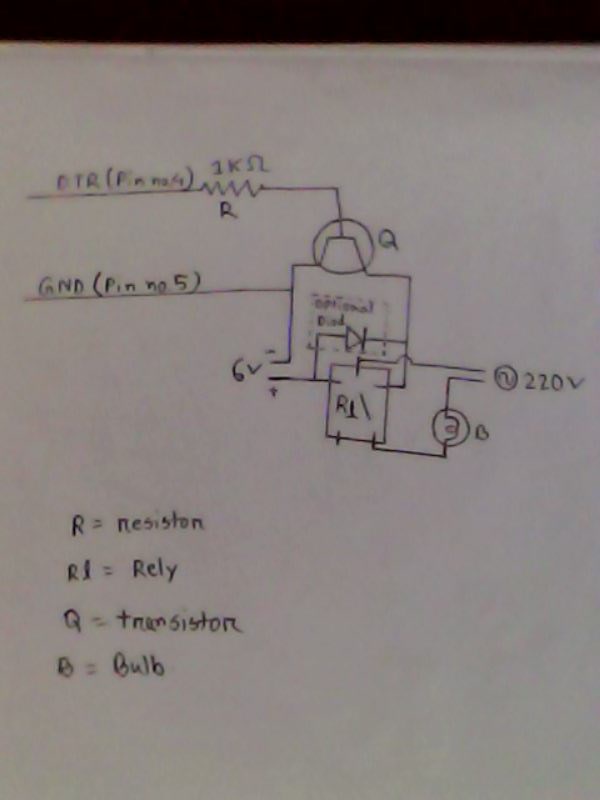 DTR (Pin no 4) 1K Ω
R
Q
GND (Pin no 5)
optional
Diod
6v - +
220v
Rl
B
R = resistor
Rl = Rely
Q = transistor
B = Bulb